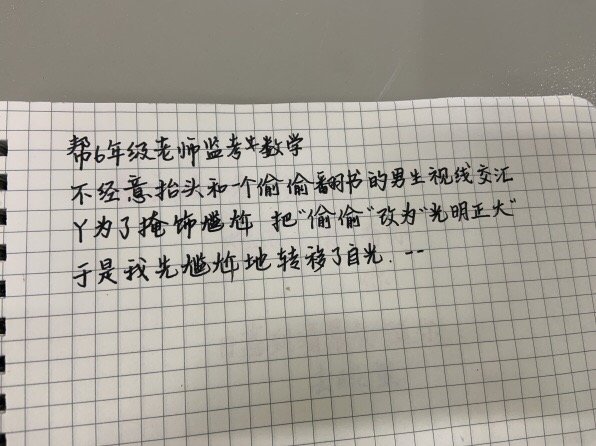 帮6年级老师监考牛数学
不经意抬头和一个偷偷翻书的男生视线交汇
丫为了掩饰尴尬 把"偷偷"改为"光明正大"
于是我先尴尬地转移了目光. --